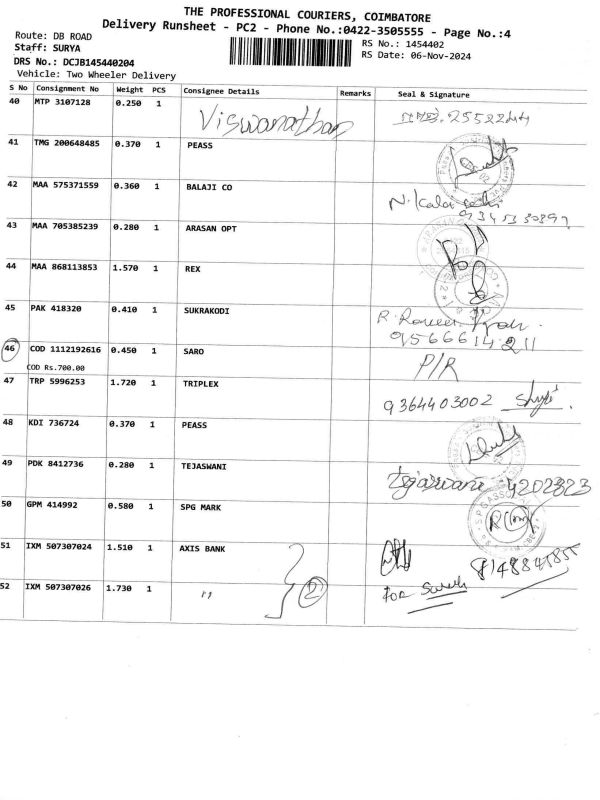 THE PROFESSIONAL COURIERS, COIMBATORE
Delivery Runsheet - PC2 - Phone No.:0422-3505555 - Page No.:4
Route: DB ROAD
Staff: SURYA
DRS No.: DCJB145440204
Vehicle: Two Wheeler Delivery
RS No.: 1454402
RS Date: 06-Nov-2024
S No Consignment No Weight PCS Consignee Details Remarks Seal & Signature
40 MTP 3107128 0.250 1 Viswanathan
41 TMG 200648485 0.370 1 PEASS
42 MAA 575371559 0.360 1 BALAJI CO
43 MAA 705385239 0.280 1 ARASAN OPT
44 MAA 868113853 1.570 1 REX
45 PAK 418320 0.410 1 SUKRAKODI
9566614211
46 COD 1112192616 0.450 1 SARO P/R
COD Rs.700.00
47 TRP 5996253 1.720 1 TRIPLEX 9364403002
48 KDI 736724 0.370 1 PEASS
49 PDK 8412736 0.280 1 TEJASWANI
50 GPM 414992 0.580 1 SPG MARK
51 IXM 507307024 1.510 1 AXIS BANK
52 IXM 507307026 1.730 1 ,, 2 FOR Suresh